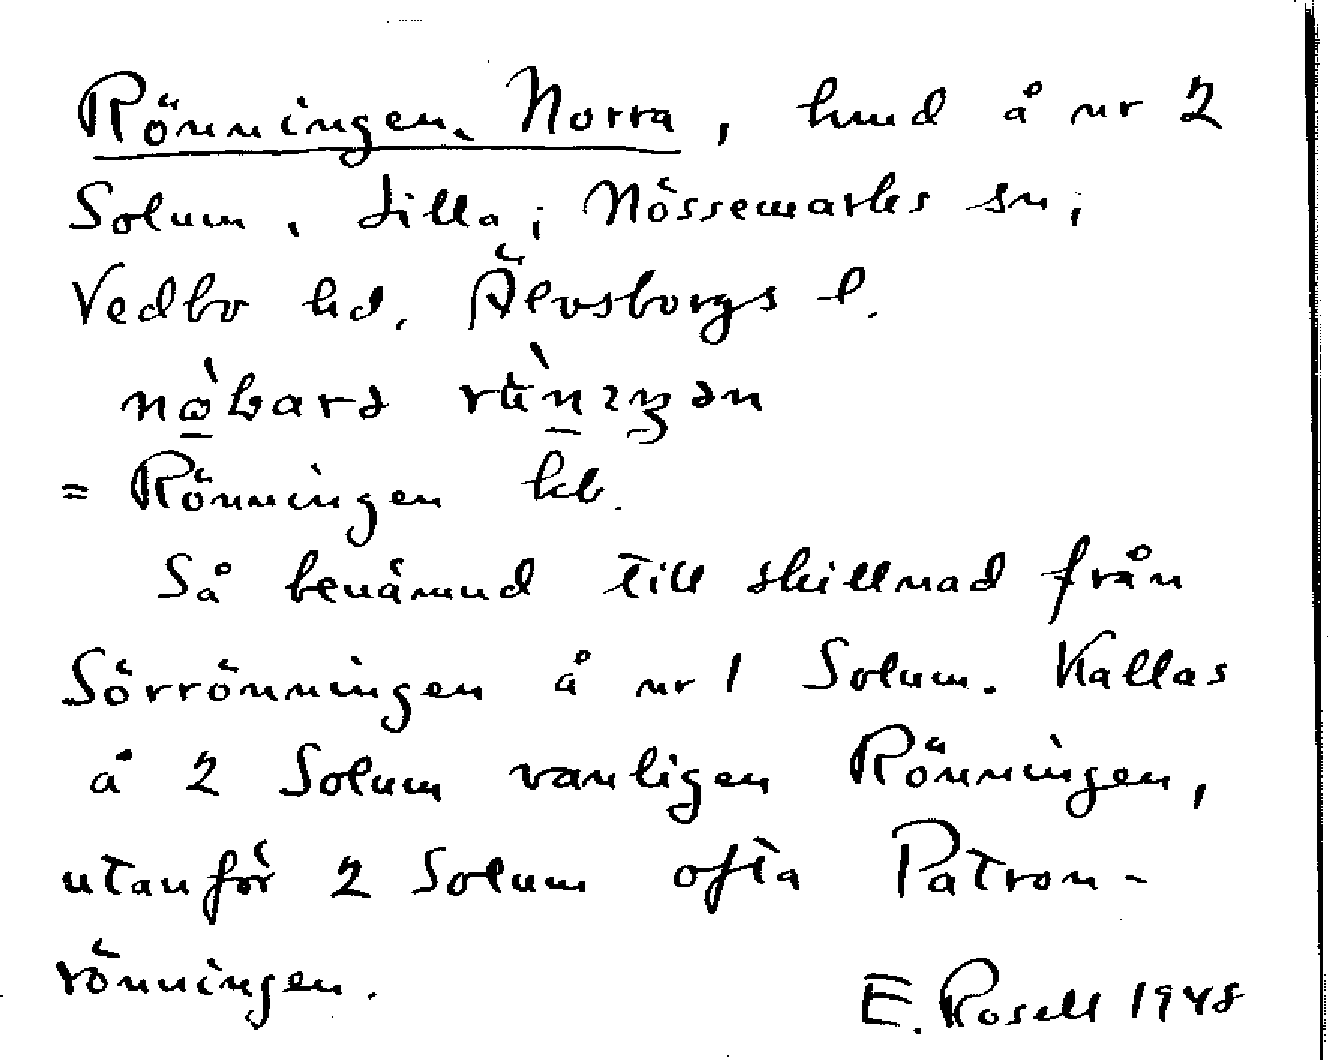 Rönningen, Norra, hmd å nr 2
Solum, lilla, i Nössemarks sn,
Vedbo hd, Älvsborgs l.
= Rönningen kb.
Så benämnd till skillnad från
Sörrönningen å nr 1 Solum. Kallas
å 2 Solum vanligen Rönningen,
utanför 2 Solum ofta Patron-
rönningen.
E. Rosell 1948